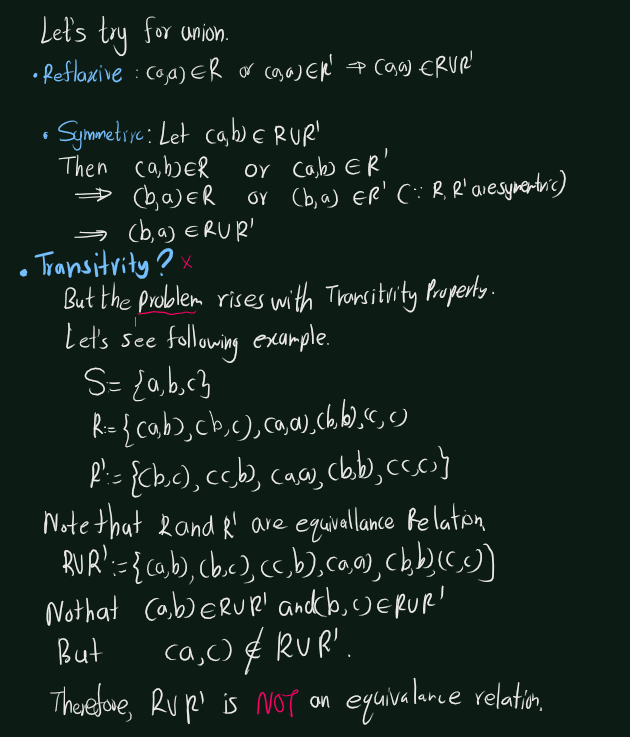 Let's try for union.
• Reflaxive : (a,a) ∈ R or (a,a) ∈ R' ⇒ (a,a) ∈ R∪R'
• Symmetric: Let (a,b) ∈ R∪R'
Then (a,b) ∈ R or (a,b) ∈ R'
⇒ (b,a) ∈ R or (b,a) ∈ R' (∵ R, R' are symentric)
⇒ (b,a) ∈ R∪R'
• Transitvity? ×
But the problem rises with Transitvity Property.
Let's see following example.
S = {a,b,c}
R:= {(a,b), (b,c), (a,a), (b,b), (c,c)
R':= {(b,c), (c,b), (a,a), (b,b), (c,c)}
Note that R and R' are equivallance Relation
R∪R' := {(a,b), (b,c), (c,b), (a,a), (b,b), (c,c)}
Nothat (a,b) ∈ R∪R' and (b,c) ∈ R∪R'
But (a,c) ∉ R∪R'.
Therefore, R∪R' is NOT an equivalance relation.